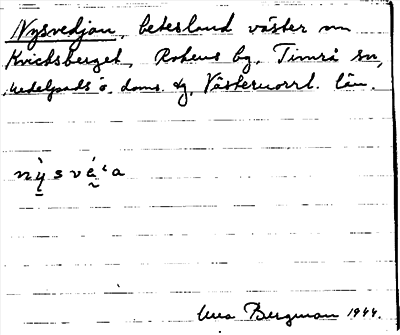 Nysvedjan, betesland väster om
Kvicksberget, Rotens by, Timrå sn,
Medelpads ö. doms. dg, Västernorrl. län.
nỳsvé̠ʿa
Bergman 1944.